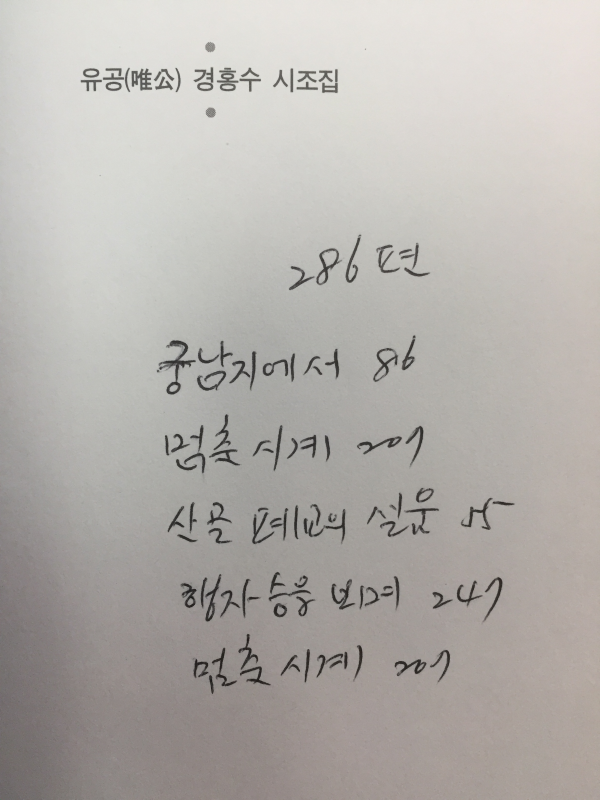 유공(唯公) 경홍수 시조집
286편
궁남지에서 86
멈춘 시계 207
산골 폐교의 설움 55
행자승을 뵈며 247
멈춘 시계 207